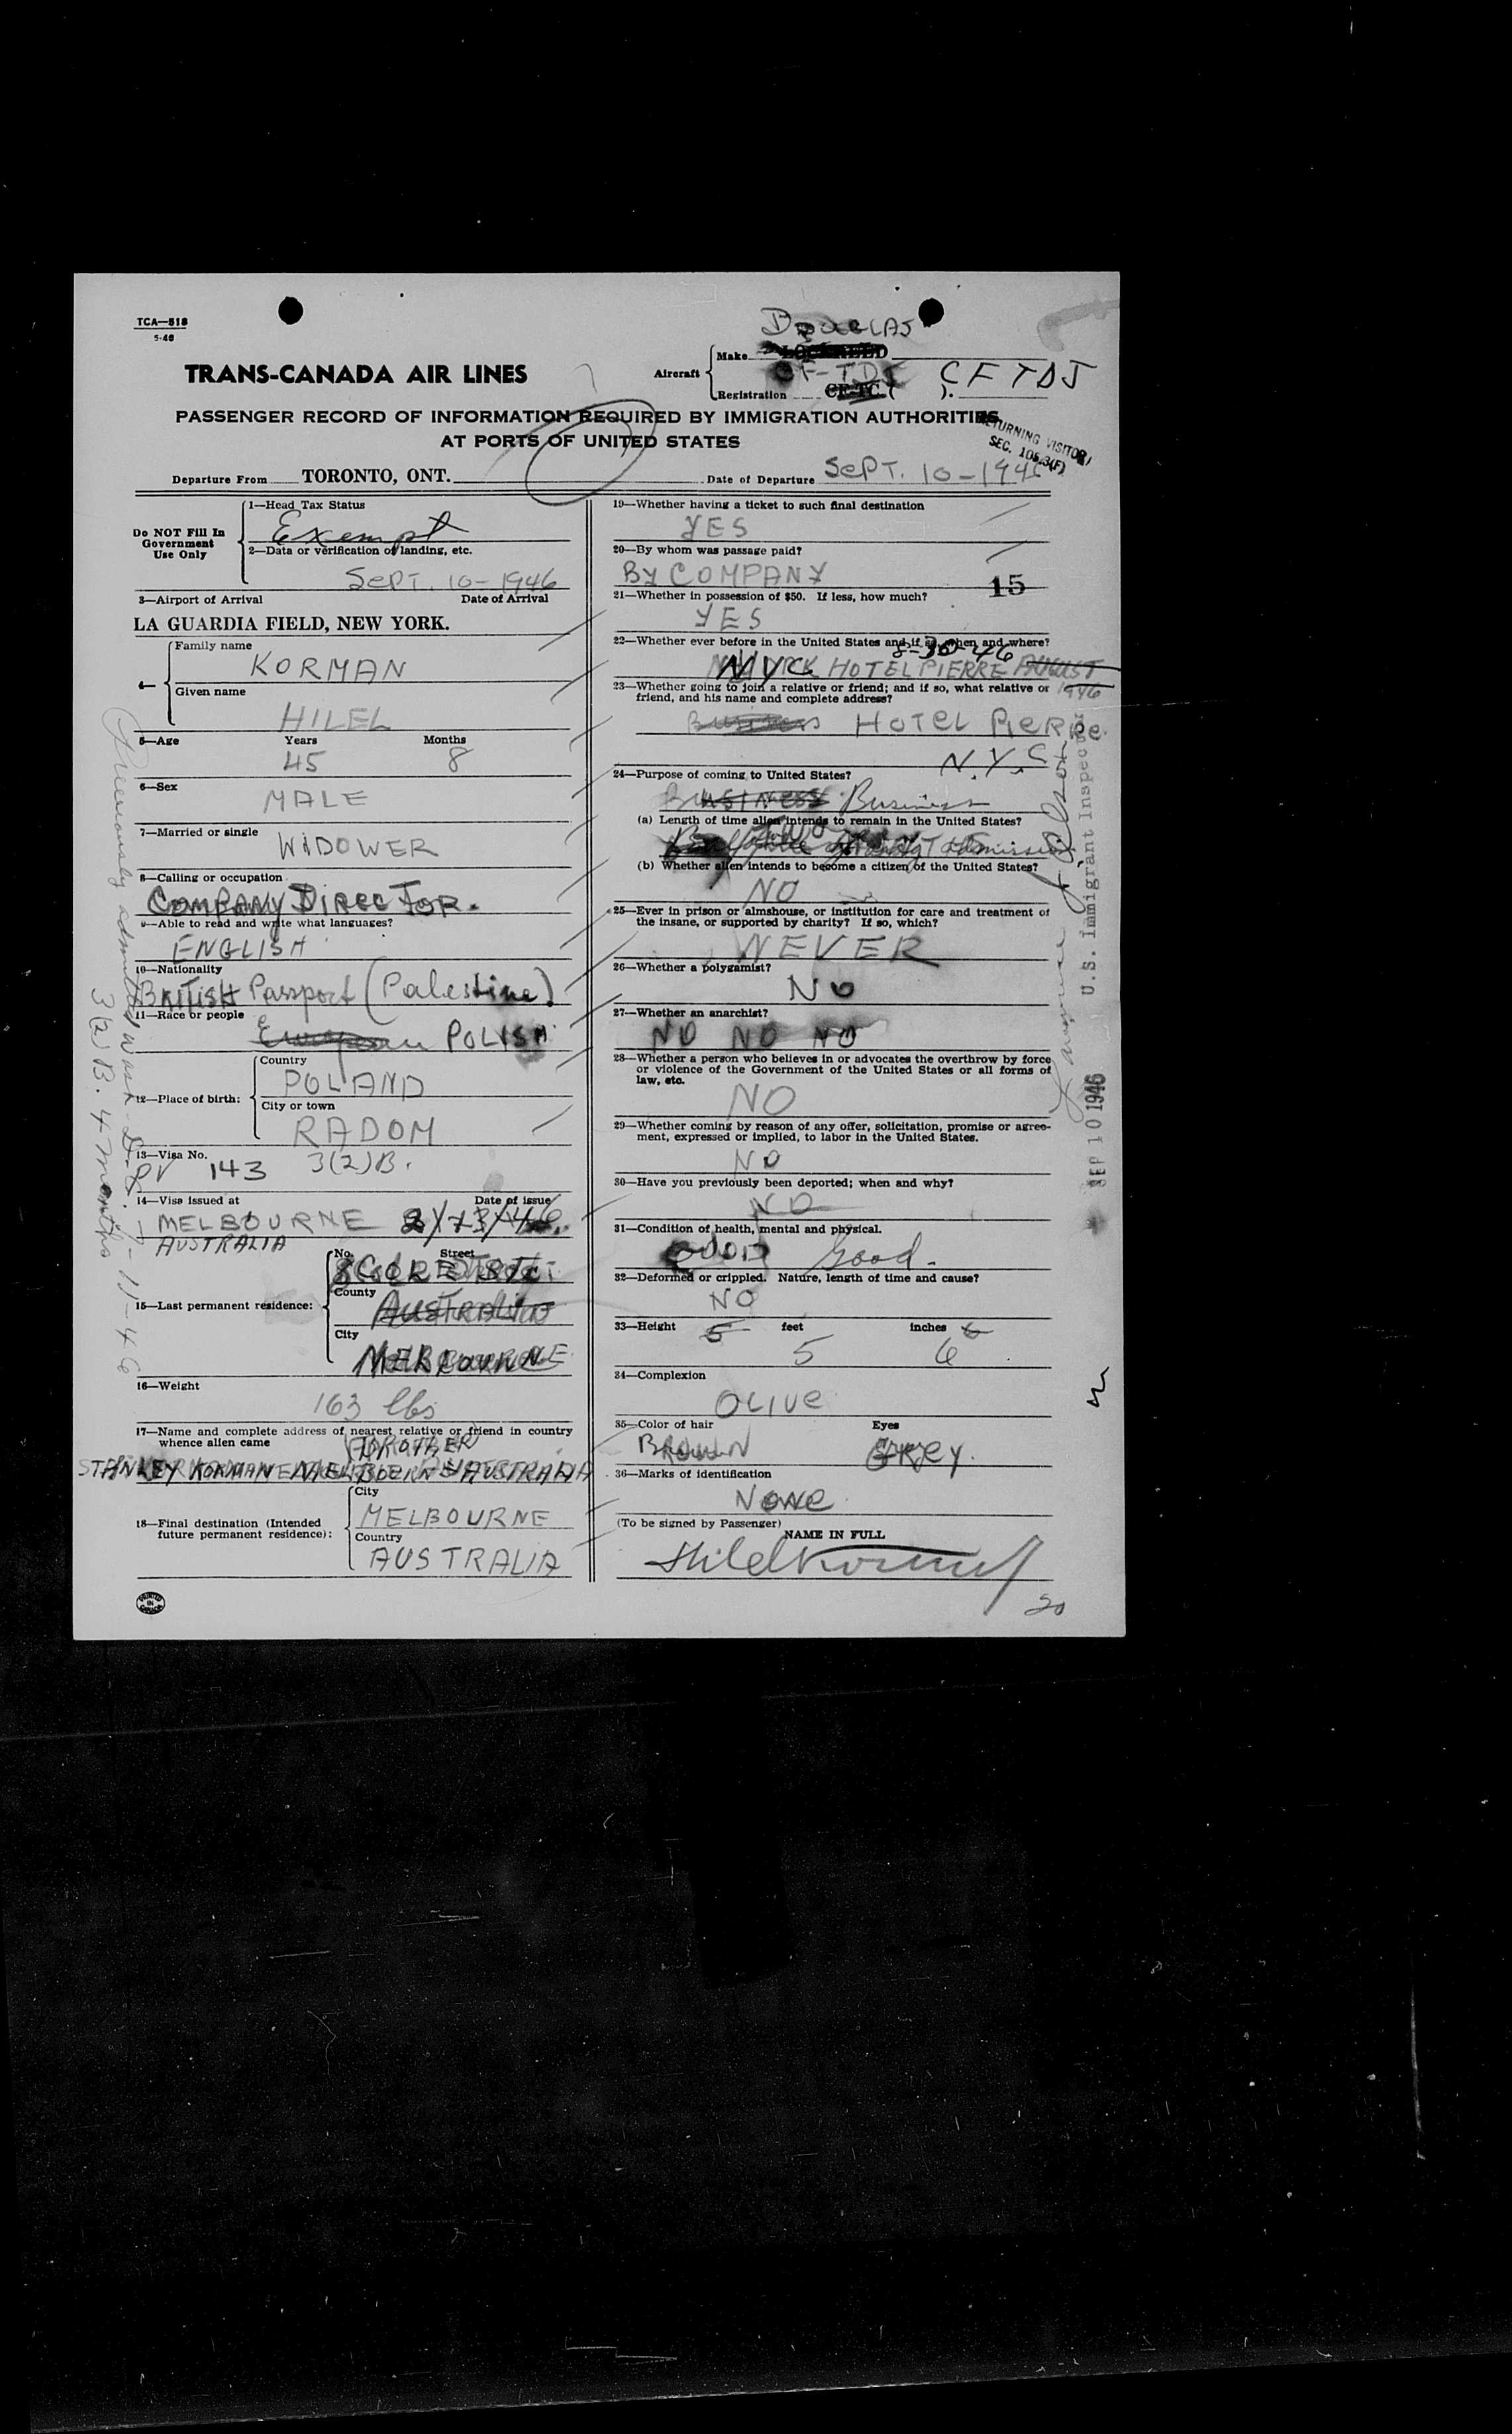 TCA—518
5-46
TRANS-CANADA AIR LINES
Aircraft
Make
DOUGLAS
LOCKHEED
Registration
CF-TDJ
CF-TC ( ).
CFTDJ
PASSENGER RECORD OF INFORMATION REQUIRED BY IMMIGRATION AUTHORITIES
AT PORTS OF UNITED STATES
RETURNING VISITOR
SEC. 105.3(F)
Departure From TORONTO, ONT.
Date of Departure SEPT. 10-1946
Do NOT Fill In
Government
Use Only
1—Head Tax Status
Exempt
2—Data or verification of landing, etc.
SEPT. 10-1946
3—Airport of Arrival Date of Arrival
LA GUARDIA FIELD, NEW YORK.
4—
Family name
KORMAN
Given name
HILEL
5—Age Years Months
45 8
6—Sex
MALE
7—Married or single
WIDOWER
8—Calling or occupation
COMPANY DIRECTOR.
9—Able to read and write what languages?
ENGLISH
10—Nationality
BRITISH Passport (Palestine)
11—Race or people
European POLISH
12—Place of birth:
Country
POLAND
City or town
RADOM
13—Visa No.
PV 143 3(2)B.
14—Visa issued at Date of issue
MELBOURNE
AUSTRALIA
15—Last permanent residence:
No. Street
County
AUSTRALIA
City
MELBOURNE
16—Weight
163 lbs
17—Name and complete address of nearest relative or friend in country
whence alien came
BROTHER
STANLEY KORMAN MELBOURNE AUSTRALIA
18—Final destination (Intended
future permanent residence):
City
MELBOURNE
Country
AUSTRALIA
PRINTED
IN
CANADA
Previously admitted Wash D.C.
3(2)B. 4 months
19—Whether having a ticket to such final destination
YES
20—By whom was passage paid?
BY COMPANY
15
21—Whether in possession of $50. If less, how much?
YES
22—Whether ever before in the United States and if so, when and where?
8-30-46
HOTEL PIERRE AUGUST
1946
23—Whether going to join a relative or friend; and if so, what relative or
friend, and his name and complete address?
Business HOTEL PIERRE.
N.Y.C
24—Purpose of coming to United States?
BUSINESS Business
(a) Length of time alien intends to remain in the United States?
(b) Whether alien intends to become a citizen of the United States?
NO
25—Ever in prison or almshouse, or institution for care and treatment of
the insane, or supported by charity? If so, which?
NEVER
26—Whether a polygamist?
NO
27—Whether an anarchist?
NO NO NO
28—Whether a person who believes in or advocates the overthrow by force
or violence of the Government of the United States or all forms of
law, etc.
NO
29—Whether coming by reason of any offer, solicitation, promise or agree-
ment, expressed or implied, to labor in the United States.
NO
30—Have you previously been deported; when and why?
NO
31—Condition of health, mental and physical.
GOOD Good.
32—Deformed or crippled. Nature, length of time and cause?
NO
33—Height 5 feet inches 6
5 6
34—Complexion
OLIVE
35—Color of hair Eyes
BROWN GREY.
36—Marks of identification
NONE
(To be signed by Passenger)
NAME IN FULL
Hilel Korman
20
U.S. Immigrant Inspector
SEP 10 1946